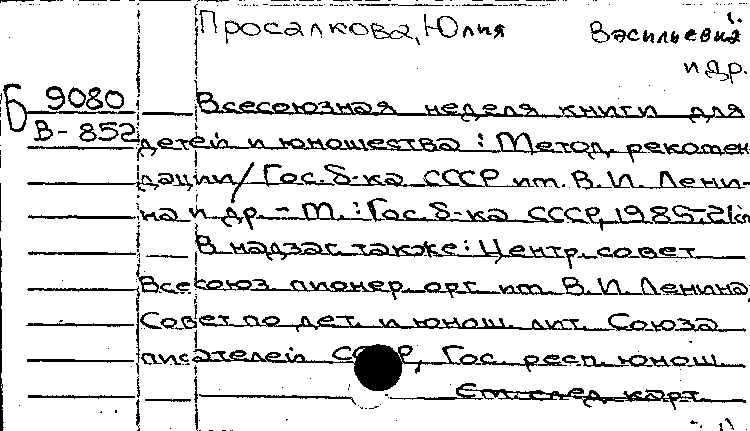 Просалкова, Юлия Васильевна
и др.
Б 9080
В-852
Всесоюзная неделя книги для
детей и юношества : Метод. рекомен
дации / Гос. б-ка СССР им. В. И. Лени-
на и др. - М. : Гос. б-ка СССР, 1985.-21 с
В надзаг. также: Центр. совет
Всесоюз. пионер. орг. им. В. И. Ленина,
Совет по дет. и юнош. лит. Союза
писателей СССР, Гос. респ. юнош.
См. след. карт.